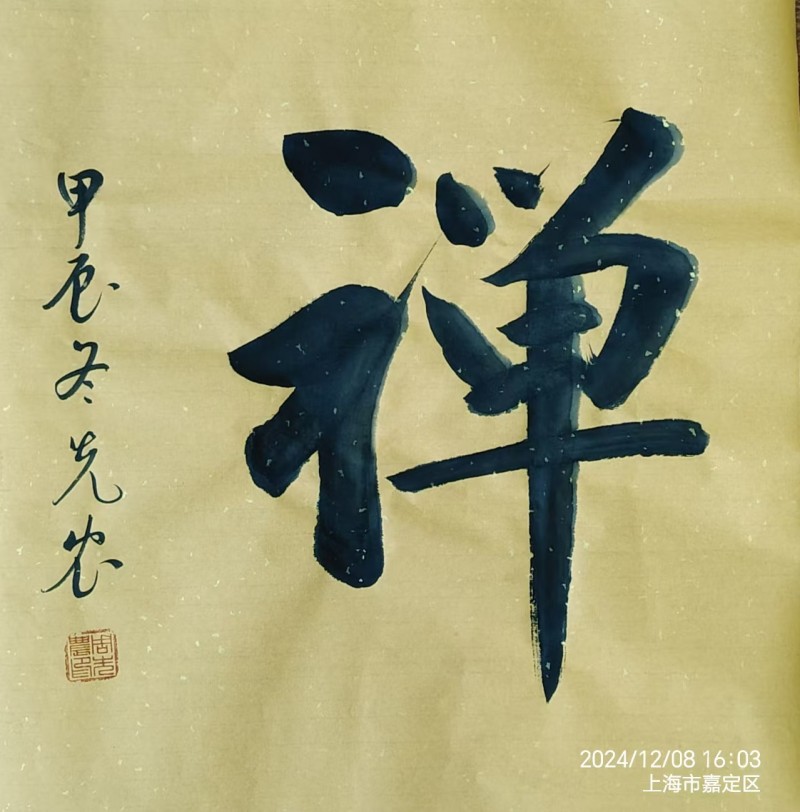 禅
甲辰冬先农
周先農印
2024/12/08 16:03
上海市嘉定区